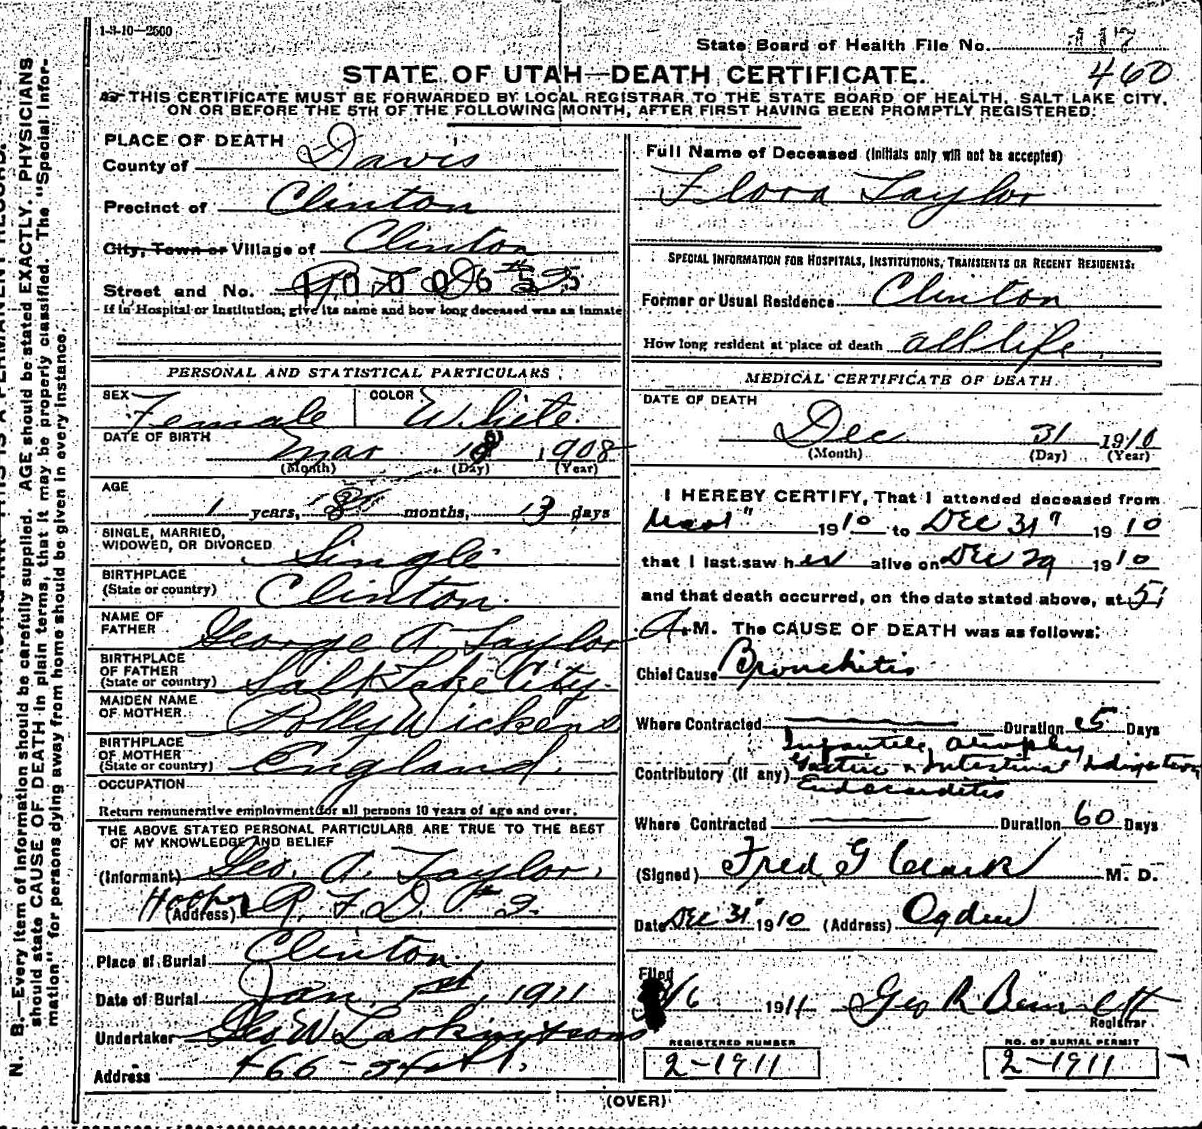 1-3-10—2500
State Board of Health File No. 117
460
STATE OF UTAH—DEATH CERTIFICATE.
THIS CERTIFICATE MUST BE FORWARDED BY LOCAL REGISTRAR TO THE STATE BOARD OF HEALTH, SALT LAKE CITY,
ON OR BEFORE THE 5TH OF THE FOLLOWING MONTH, AFTER FIRST HAVING BEEN PROMPTLY REGISTERED.
PLACE OF DEATH
County of Davis
Precinct of Clinton
City, Town or Village of Clinton
Street and No.
If in Hospital or Institution, give its name and how long deceased was an inmate
PERSONAL AND STATISTICAL PARTICULARS
SEX Female COLOR White
DATE OF BIRTH Mar 18 1908
(Month) (Day) (Year)
AGE
1 years, 8 months, 13 days
SINGLE, MARRIED,
WIDOWED, OR DIVORCED Single
BIRTHPLACE
(State or country) Clinton
NAME OF
FATHER George A Taylor
BIRTHPLACE
OF FATHER
(State or country) Salt Lake City
MAIDEN NAME
OF MOTHER Polly Wickens
BIRTHPLACE
OF MOTHER
(State or country) England
OCCUPATION
Return remunerative employment for all persons 10 years of age and over.
THE ABOVE STATED PERSONAL PARTICULARS ARE TRUE TO THE BEST
OF MY KNOWLEDGE AND BELIEF
(Informant) Geo. A. Taylor.
Hooper (Address) R. F. D. # 2.
Place of Burial Clinton
Date of Burial Jan. 1st, 1911
Undertaker Geo W Larkin & sons
Address 466 - 24 St.
Full Name of Deceased (Initials only will not be accepted)
Flora Taylor
SPECIAL INFORMATION FOR HOSPITALS, INSTITUTIONS, TRANSIENTS OR RECENT RESIDENTS:
Former or Usual Residence Clinton
How long resident at place of death all life
MEDICAL CERTIFICATE OF DEATH
DATE OF DEATH
Dec 31 1910
(Month) (Day) (Year)
I HEREBY CERTIFY, That I attended deceased from
1910 to Dec 31" 1910
that I last saw her alive on Dec 29 1910
and that death occurred, on the date stated above, at 5
A. M. The CAUSE OF DEATH was as follows:
Chief Cause Bronchitis
Where Contracted Duration Days
Infantile atrophy
Contributory (if any) Gastric & Intestinal Indigestion
Endocarditis
Where Contracted Duration 60 Days
(Signed) Fred G Clark M. D.
Date Dec 31" 1910 (Address) Ogden
Filed
1/6 1911 Geo R Bennett
Registrar
REGISTERED NUMBER NO. OF BURIAL PERMIT
2-1911 2-1911
(OVER)
N. B.—Every item of information should be carefully supplied. AGE should be stated EXACTLY. PHYSICIANS
should state CAUSE OF DEATH in plain terms, that it may be properly classified. The "Special Infor-
mation" for persons dying away from home should be given in every instance.